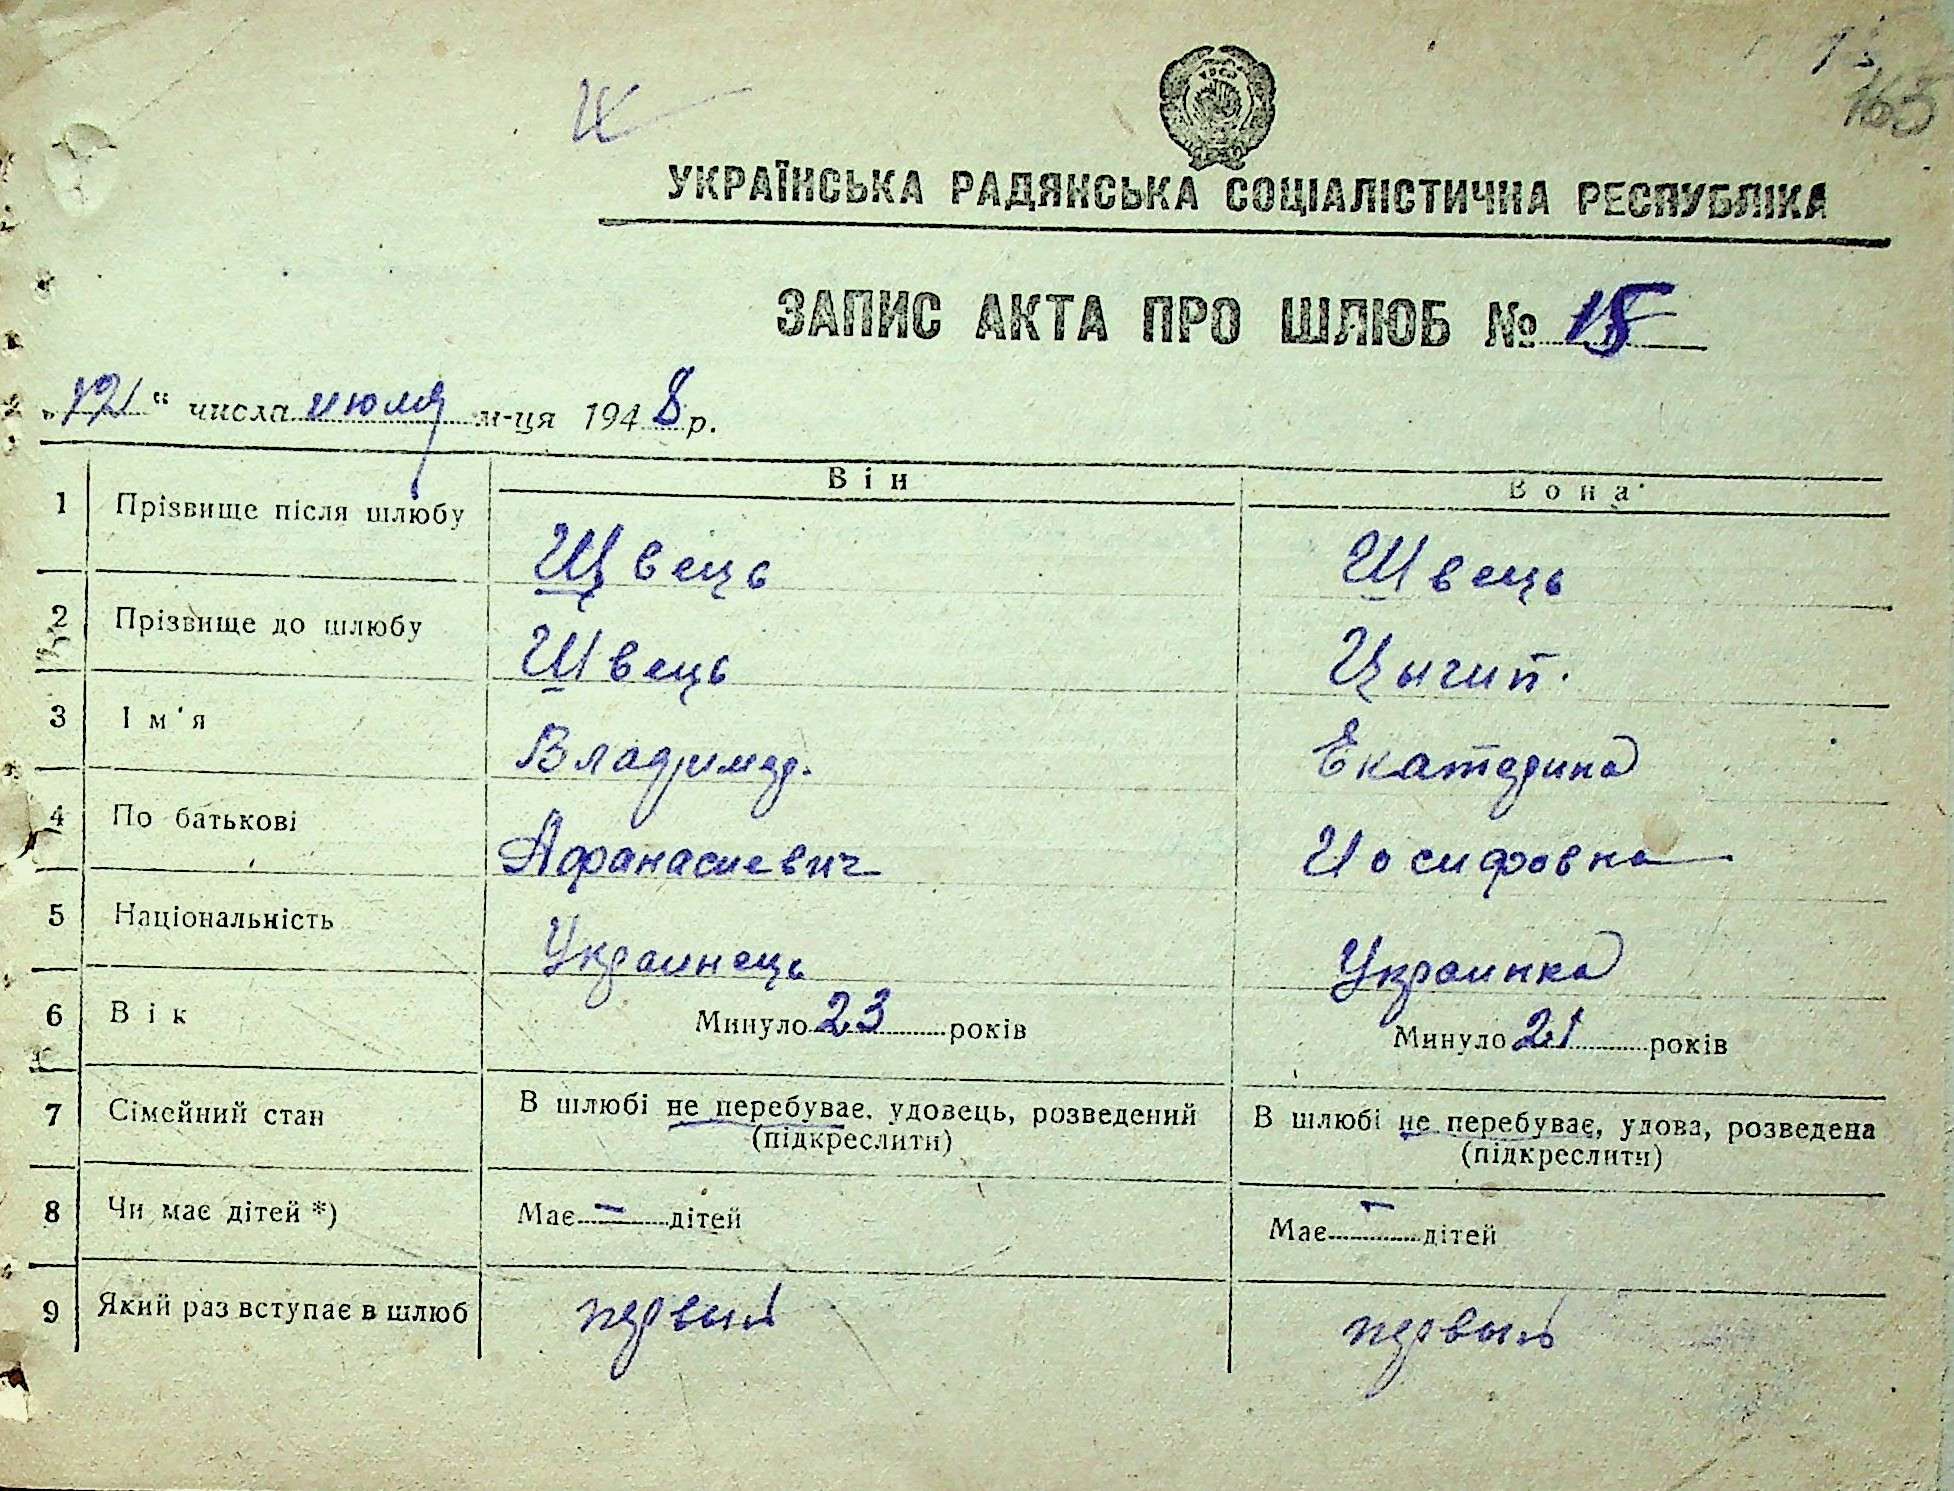 163
УКРАЇНСЬКА РАДЯНСЬКА СОЦІАЛІСТИЧНА РЕСПУБЛІКА
ЗАПИС АКТА ПРО ШЛЮБ № 15
„12“ числа июля м-ця 1948 р.
Він Вона
1 Прізвище після шлюбу Швець Швець
2 Прізвище до шлюбу Швець Цычип.
3 Ім'я Владимер. Екатерина
4 По батькові Афанасиевич Иосифовна
5 Національність Украинець Украинка
6 Вік Минуло 23 років Минуло 21 років
7 Сімейний стан В шлюбі не перебуває, удовець, розведений (підкреслити) В шлюбі не перебуває, удова, розведена (підкреслити)
8 Чи має дітей *) Має — дітей Має — дітей
9 Який раз вступає в шлюб первый первый